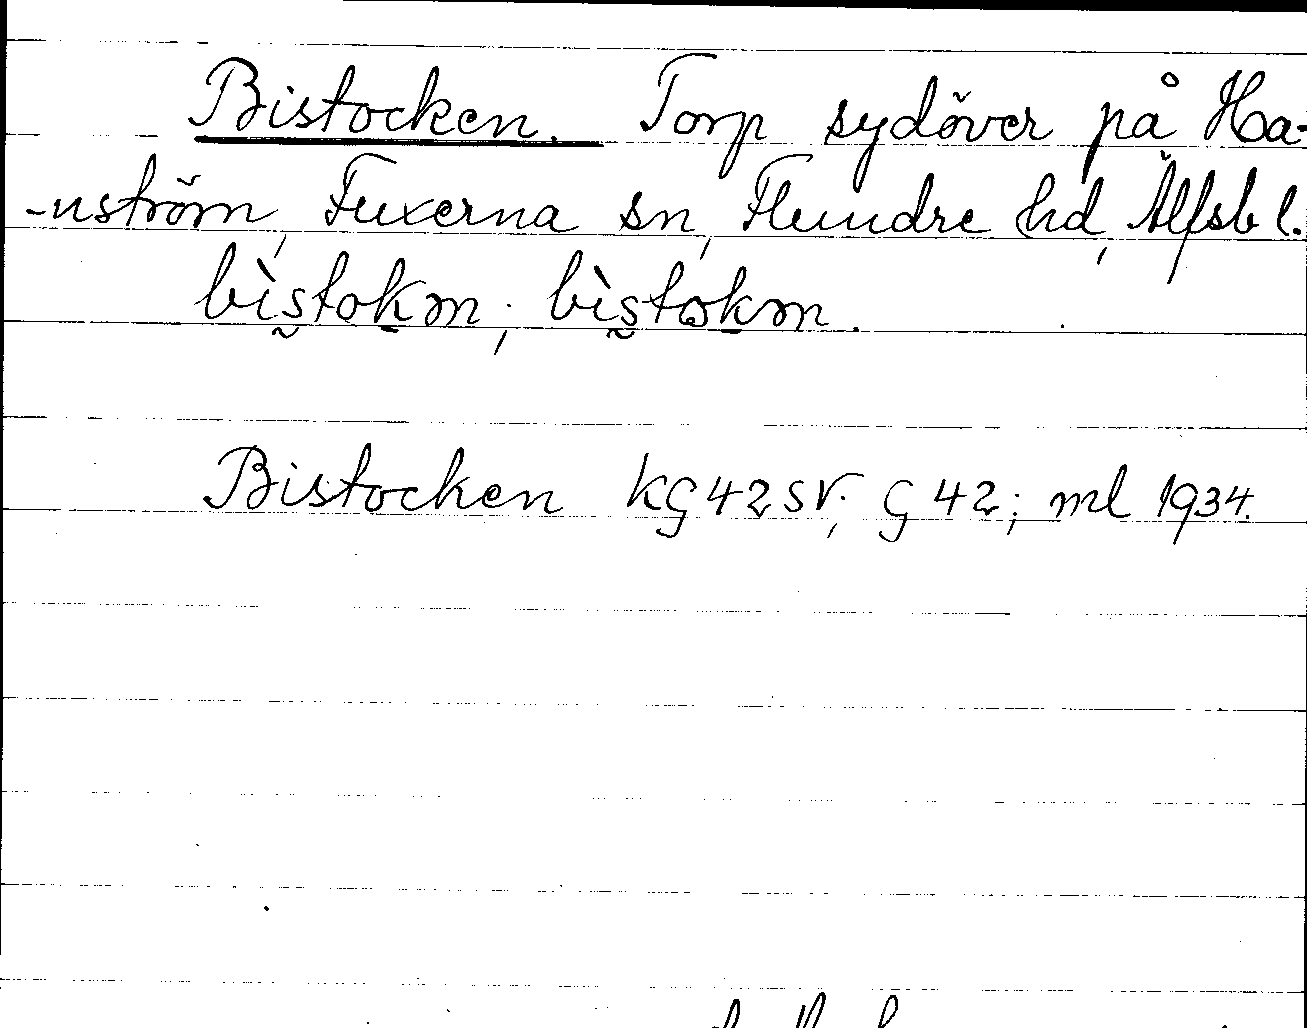 Bistocken. Torp sydöver på Ha-
-nström, Fuxerna sn, Flundre hd, Älfsb l.
bìstokm; bìstokm.
Bistocken KG42SV; G 42; ml 1934.